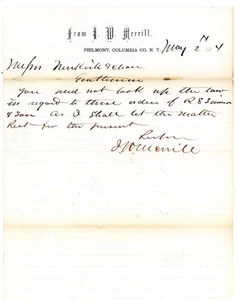 From J. W. Merrill,
PHILMONT, COLUMBIA CO. N. Y.
May 2
Messrs Newkirk & Chace
Gentlemen
You need not look up the law
in regard to those orders of R S
& Son As I shall let the matter
Rest for the present
J W Merrill